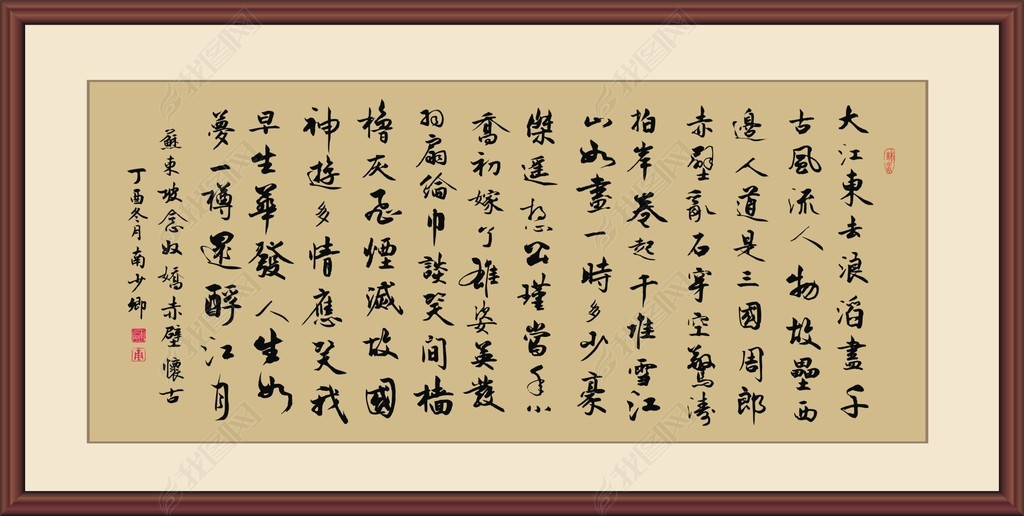 大江東去浪滔盡千
古風流人物故壘西
邊人道是三國周郎
赤壁亂石穿空驚濤
拍岸卷起千堆雪江
山如畫一時多少豪
傑遥想公瑾當年小
喬初嫁了雄姿英發
羽扇綸巾談笑间樯
櫓灰飛煙滅故國
神遊多情應笑我
早生華發人生如
夢一樽還酹江月
蘇東坡念奴嬌赤壁懷古
丁酉冬月南少卿
我图网